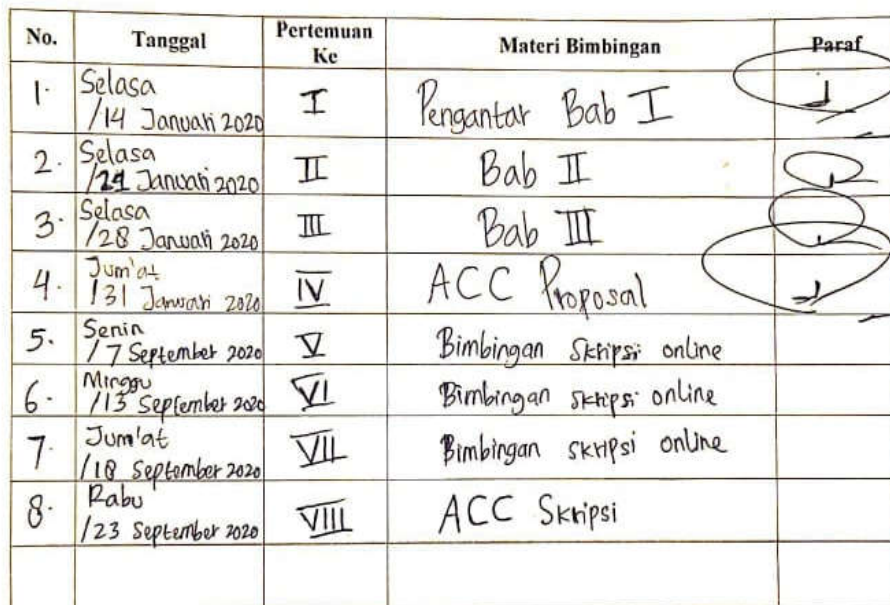 No. Tanggal Pertemuan Ke Materi Bimbingan Paraf
1. Selasa
/14 Januari 2020 I Pengantar Bab I
2. Selasa
/21 Januari 2020 II Bab II
3. Selasa
/28 Januari 2020 III Bab III
4. Jum'at
/31 Januari 2020 IV ACC Proposal
5. Senin
/7 September 2020 V Bimbingan Skripsi online
6. Minggu
/13 September 2020 VI Bimbingan skripsi online
7. Jum'at
/18 September 2020 VII Bimbingan skripsi online
8. Rabu
/23 September 2020 VIII ACC Skripsi